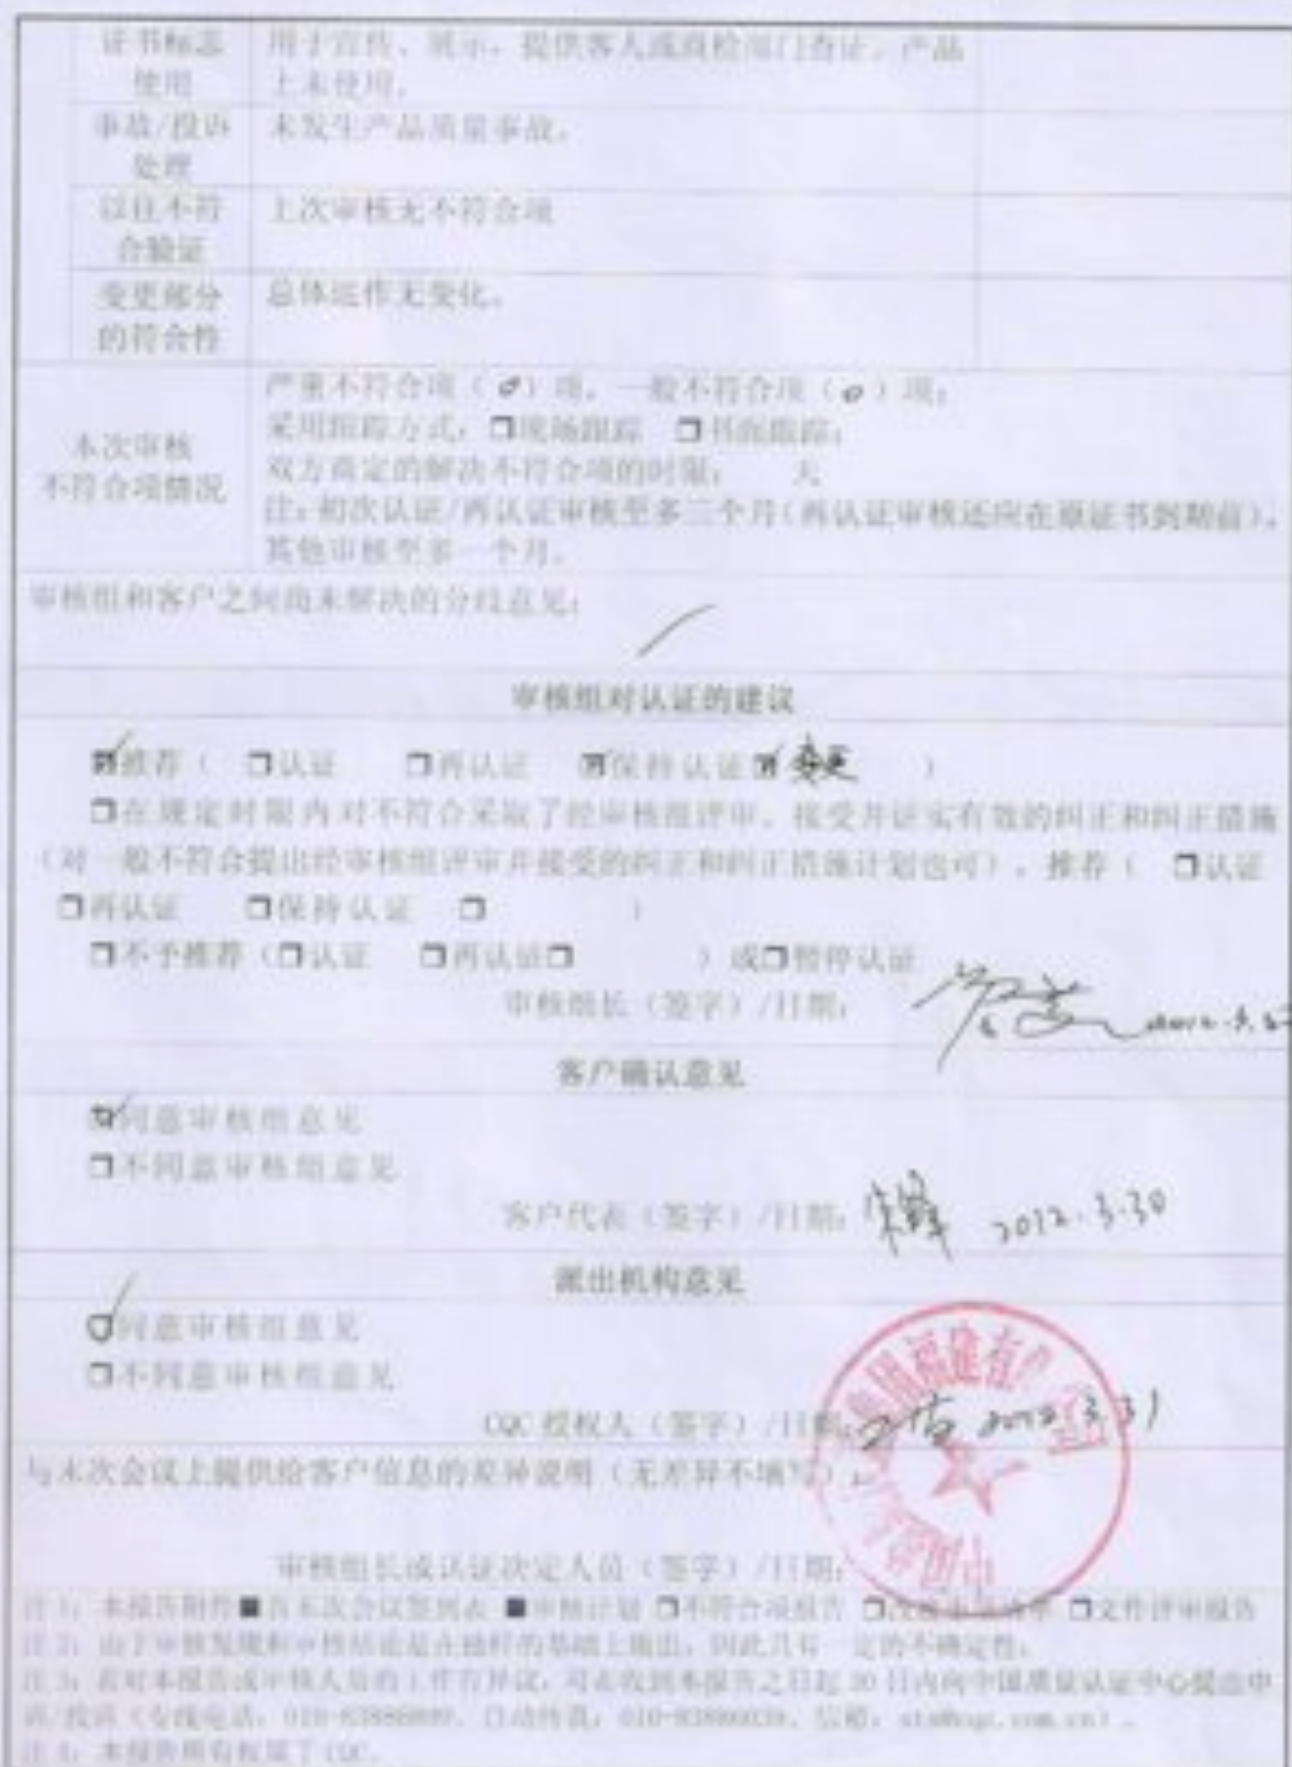 证书标志使用 用于宣传、展示，提供客人或商检部门查证。产品上未使用。
事故/投诉处理 未发生产品质量事故。
以往不符合验证 上次审核无不符合项
变更部分的符合性 总体运作无变化。
本次审核不符合项情况
严重不符合项（0）项，一般不符合项（0）项；
采用跟踪方式：□现场跟踪 □书面跟踪；
双方商定的解决不符合项的时限： 天
注：初次认证/再认证审核至多三个月（再认证审核还应在原证书到期前），
其他审核至多一个月。
审核组和客户之间尚未解决的分歧意见：
审核组对认证的建议
☑推荐（ □认证 □再认证 ☑保持认证☑变更 ）
□在规定时限内对不符合采取了经审核组评审、接受并证实有效的纠正和纠正措施
（对一般不符合提出经审核组评审并接受的纠正和纠正措施计划也可），推荐（ □认证
□再认证 □保持认证 □ ）
□不予推荐（□认证 □再认证□ ）或□暂停认证
审核组长（签字）/日期：
客户确认意见
☑同意审核组意见
□不同意审核组意见
客户代表（签字）/日期： 2012.3.30
派出机构意见
☑同意审核组意见
□不同意审核组意见
CQC 授权人（签字）/日期： 2012.3.31
与末次会议上提供给客户信息的差异说明（无差异不填写）：
审核组长或认证决定人员（签字）/日期：
注 1：本报告附件■首末次会议签到表 ■审核计划 □不符合项报告 □文件评审报告
注 2：由于审核发现和审核结论是在抽样的基础上做出，因此具有一定的不确定性。
注 3：若对本报告或审核人员的工作有异议，可在收到本报告之日起 30 日内向中国质量认证中心提出申
诉/投诉（专线电话：010- 自动传真：010- 信箱：
注 4：本报告所有权属于 CQC。